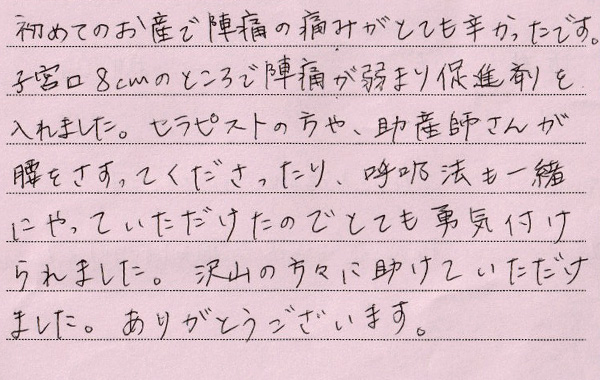 初めてのお産で陣痛の痛みがとても辛かったです。
子宮口8cmのところで陣痛が弱まり促進剤を
入れました。セラピストの方や、助産師さんが
腰をさすってくださったり、呼吸法も一緒
にやっていただけたのでとても勇気付け
られました。沢山の方々に助けていただけ
ました。ありがとうございます。